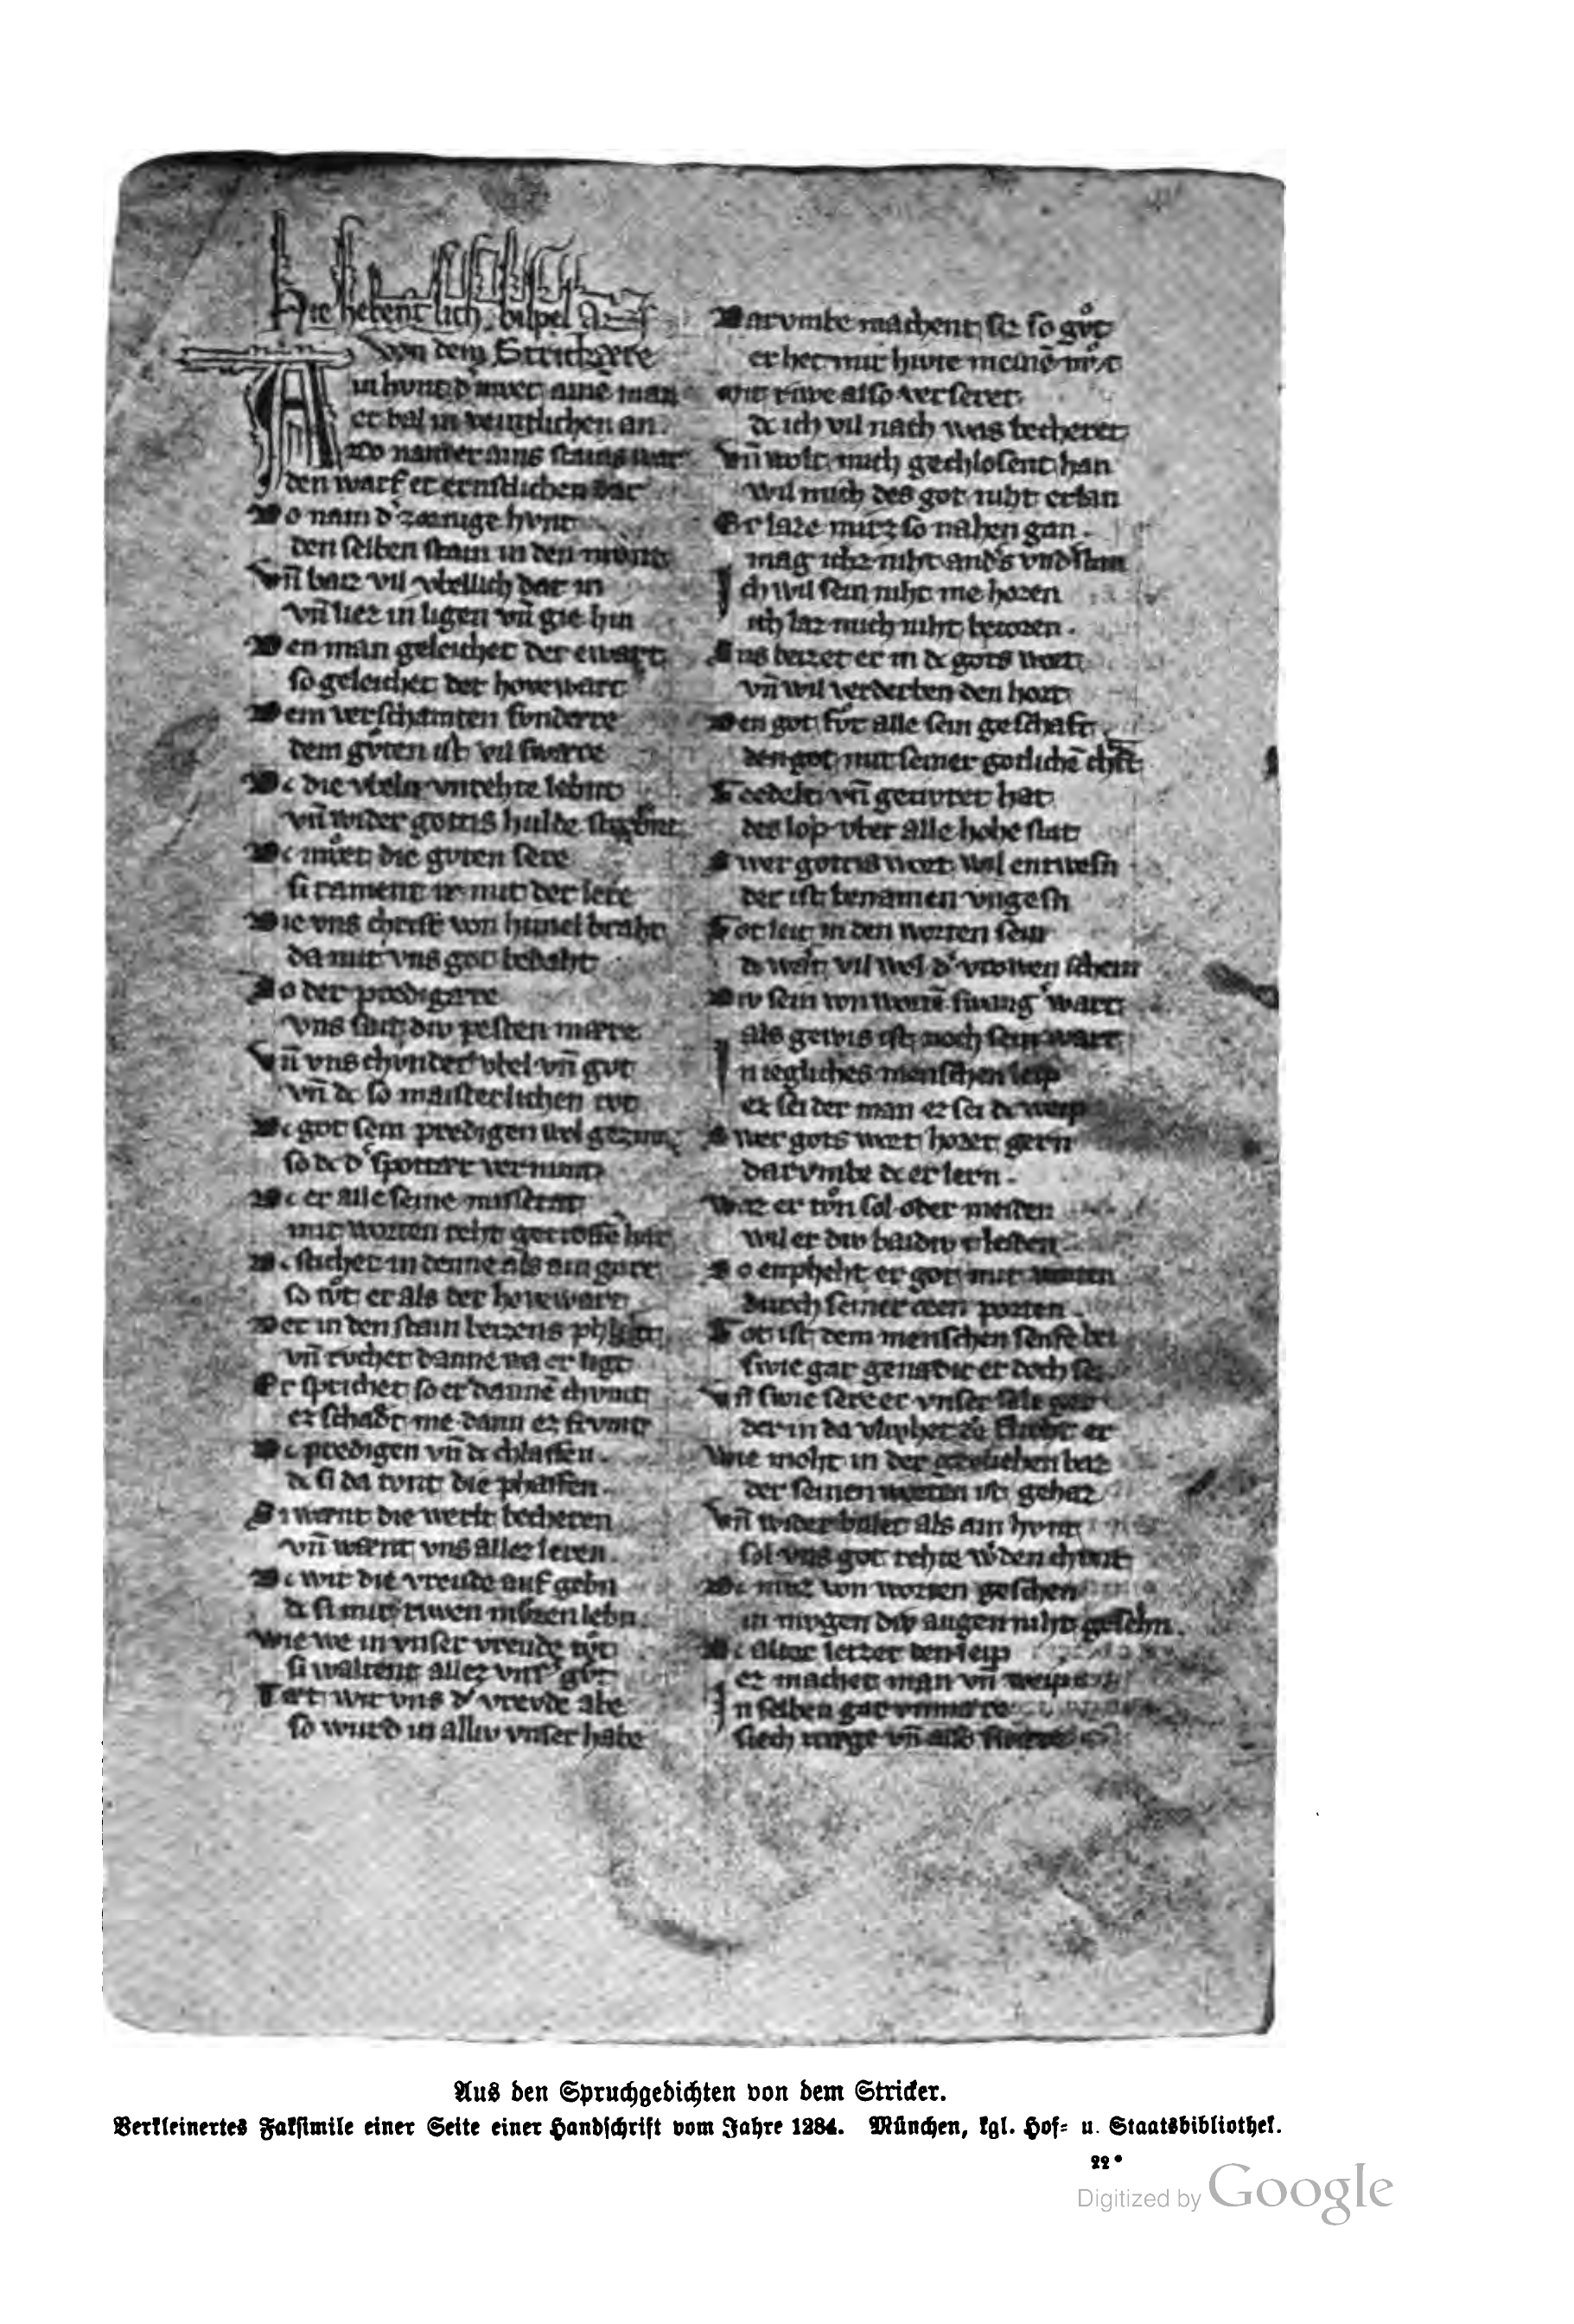 Hie hebent sich bispel
von dem Strichære
in hvnt d' ainē man
er bal in veintlichen an.
Do nam er ains stains war
den warf er ernstlichen dar
Do nam d' zornige hvnt
den selben stain in den mvnt
vn̄ baiz vil vbellich dar in
vn̄ liez in ligen vn̄ gie hin
Den man geleichet der ewart
so geleichet der hovewart
Dem verschamten svndære
dem gvten ist vil swære
die vbeln vnrehte lebnt
vn̄ wider gottis hulde
mvet die gvten sere
si rament ir mit der lere
Die vns christ von himel braht
da mit vns got bedaht
So der predigære
vns sait div pesten mære
Vn̄ vns chvndet vbel vn̄ gvt
vn̄ dc so maisterlichen tvt
got sein predigen wol
so dc d' spottære vernimt
Dc er alle seine missetat
mit worten reht getroffē hat
Dc stichet in denne als ain gart
so tv̊t er als der hovewart
Der in den stain beizens
vn̄ rvchet danne wa er ligt
Er sprichet so er dannē chvmt
ez schadt me dann ez frvmt
Dc predigen vn̄ dc chlaffen.
dc si da tvnt die phaffen.
Si wænt die werlt becheren
vn̄ wænt vns allez leren.
Dc wir die vreude auf gebn
dc si mit riwen mvzen lebn.
Wie we in vnser vreude tv̊t
si waltent allez gv̊t
Tæt wir vns d' vrevde abe
so wurd in alliv vnser habe
Darvmbe machent siz so gv̊t
er het mir hivte meinē mv̊t
Mit rive also verseret
dc ich vil nach was becheret
Vn̄ wolt mich gechlosent han
wil mich des got niht erlan
Er laze mirz so nahen gan.
mag ichz niht
Ich wil sein niht me horen
ich laz mich niht betoren.
Aus beizet er in dc gots wort
vn̄ wil verderben den hort
Den got fv̊r alle sein geschaft
den got mit seiner gotlichē chraft
Geedelt vn̄ getivret hat
des lop vber alle hohe stat
Swer gottis wort wil entwesn
der ist benamen vngesn
Got leit in den worten sein
vil wol d' vrowen schein
Div sein von worten swang' wart
als gewis ist noch sein wart
In iegliches menschen leip
ez sei der man ez sei dc weip
Swer gots wort horet gern
darvmbe dc er lern.
Waz er tv̊n sol oder meiden
wil er div baidiv
So enphæht er got mit worten
durch seiner oren porten.
Got ist dem menschen senfte bei
swie gar genædic er doch sei.
Vn̄ swie sere er vnser sele
der in da vlivhet
Wie moht in der gesliehen baz
der seinen worten ist gehaz
Vn̄ wider billet als ain hvnt
sol vns got rehte w'den chvnt
Dc mvz von worten geschen
in mvgen div augen niht gesehn.
Dc alter letzet den leip
ez machet man vn̄ weip
In selben gar vnmære
siech
Aus den Spruchgedichten von dem Stricker.
Verkleinertes Faksimile einer Seite einer Handschrift vom Jahre 1284. München, kgl. Hof- u. Staatsbibliothek.
22*
Digitized by Google